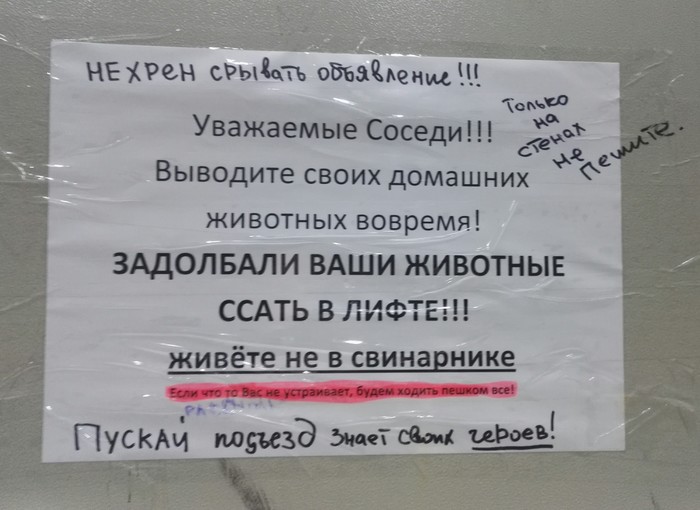 НЕХРЕН СРЫВАТЬ ОБЪЯВЛЕНИЕ!!!
Только
на
стенах
не
пешите.
Уважаемые Соседи!!!
Выводите своих домашних
животных вовремя!
ЗАДОЛБАЛИ ВАШИ ЖИВОТНЫЕ
ССАТЬ В ЛИФТЕ!!!
живёте не в свинарнике
Если что то Вас не устраивает, будем ходить пешком все!
Пускай подъезд знает своих героев!